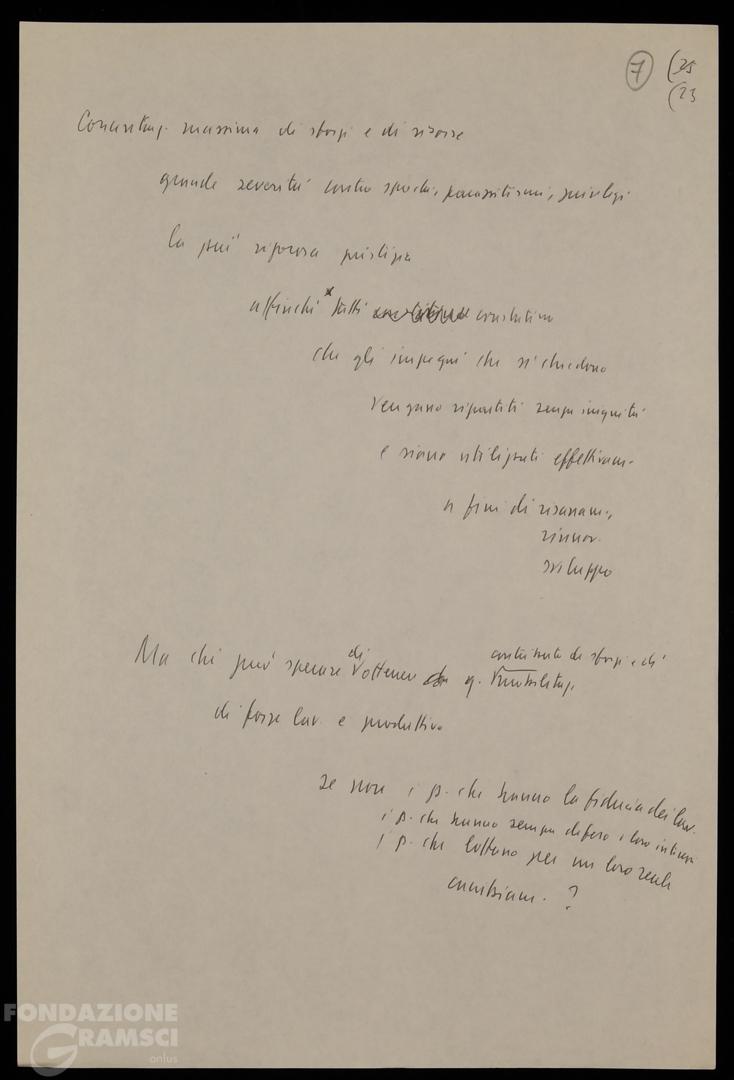 7 (25
(23
Concentraz. massima di sforzi e di risorse
grande severità contro sprechi, parassitismi, privilegi
la più rigorosa giustizia
affinché tutti constatino
che gli impegni che si chiedono
vengano ripartiti senza iniquità
e siano utilizzati effettivam.
a fini di risanam.,
rinnov.
sviluppo
contributo di sforzi e di
Ma chi può sperare di ottenere q. mobilitaz.
di forze lav. e produttive
se non i p. che hanno la fiducia dei lav.
i p. che hanno sempre difeso i loro interessi
i p. che lottano per un loro reale
cambiam. ?
FONDAZIONE
GRAMSCI
onlus